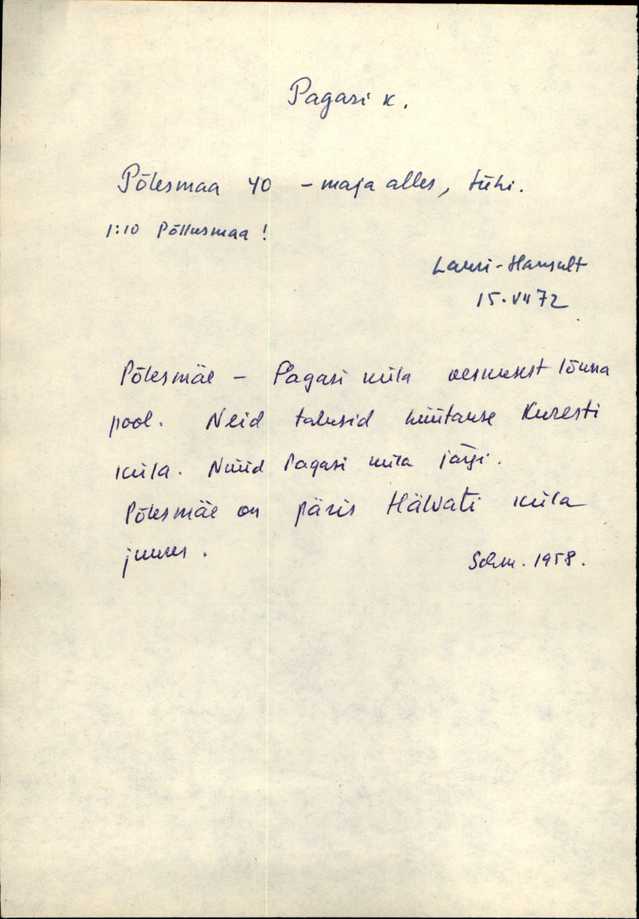 Pagari k.
Põlesmaa 40 - maja alles, tühi.
1:10 Põllusmaa!
Lauri-Hansult
15.VII 72
Põlesmäe - Pagari küla keskusest lõuna
pool. Neid talusid hüütakse Kuresti
küla. Nüüd Pagari küla järgi.
Põlesmäe on päris Hälvati küla
juures.
Schm. 1958.